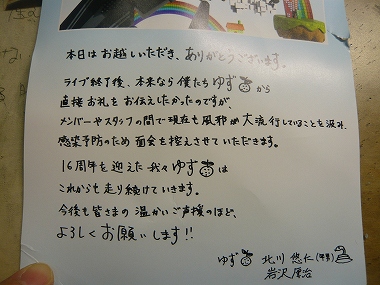 本日は お越しいただき、ありがとうございます。
ライブ終了後、本来なら 僕たち ゆず から
直接お礼を お伝えしたかったのですが、
メンバーやスタッフの間で現在も風邪が大流行していることを汲み、
感染予防のため 面会を控えさせていただきます。
16周年を迎えた我々 ゆず は
これからも走り続けていきます。
今後も皆さまの 温かいご声援のほど、
よろしくお願いします!!
ゆず 北川 悠仁
岩沢厚治